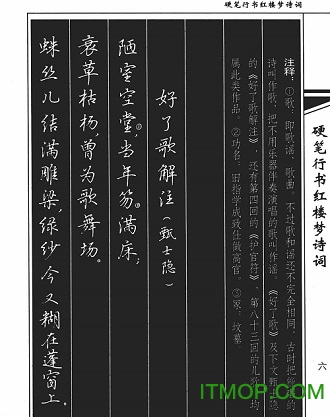 硬笔行书红楼梦诗词
硬笔行书红楼梦诗词
六
注释：①歌，即歌谣，歌曲。不过歌和谣还不完全相同，古时把的
诗叫作歌，把不用乐器伴奏演唱的歌叫作谣。《好了歌》及下文甄士隐
的《好了歌解注》，还有第四回的《护官符》、第八十三回的儿歌均
属此类作品。②功名：旧指学成致仕做高官。③冢：坟墓
好了歌解注（甄士隐）
陋室空堂，当年笏满床；
衰草枯杨，曾为歌舞场。
蛛丝儿结满雕梁，绿纱今又糊在蓬窗上。
ITMOP.COM